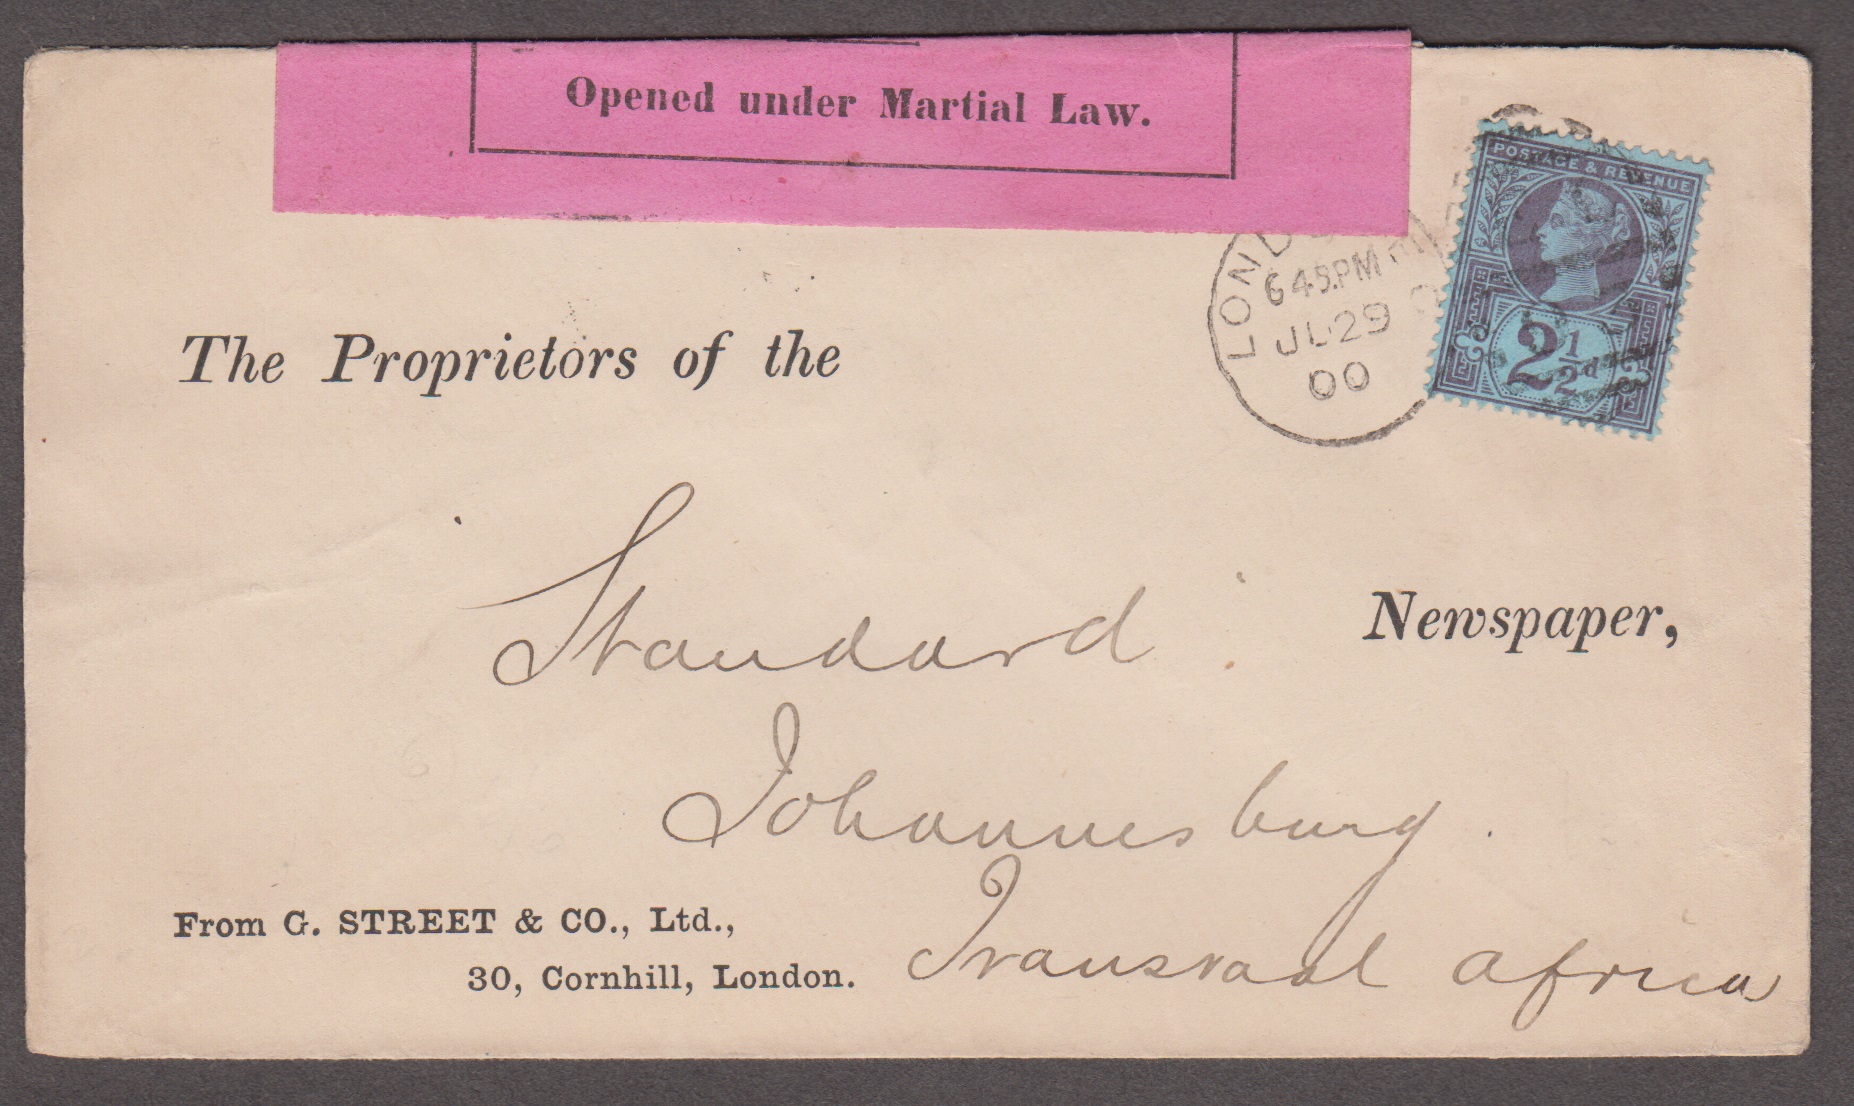 Opened under Martial Law.
POSTAGE & REVENUE
2½d
LONDON
6 45.PM
JU 29
00
The Proprietors of the
Standard
Newspaper,
Johannesburg.
Transvaal Africa
From G. STREET & CO., Ltd.,
30, Cornhill, London.